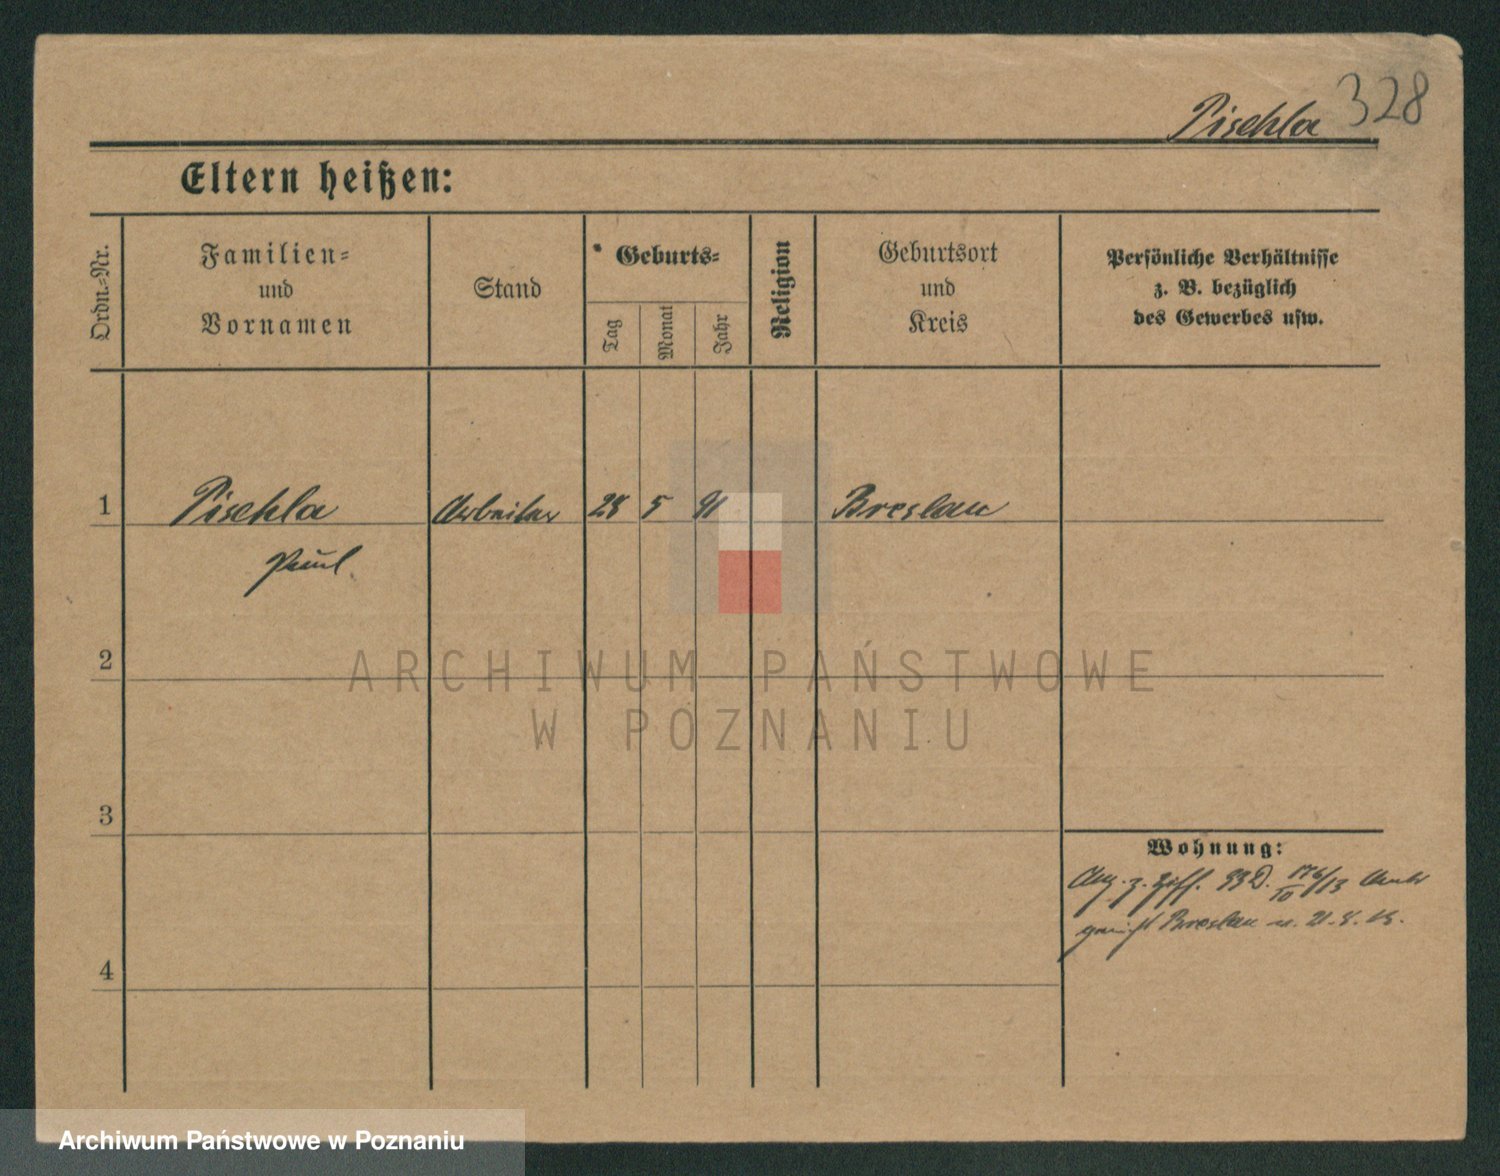 Pischla 328
Eltern heißen:
Ordn.-Nr.
Familien- und Vornamen
Stand
Geburts-
Tag
Monat
Jahr
Religion
Geburtsort und Kreis
Persönliche Verhältnisse
z. B. bezüglich
des Gewerbes usw.
1 Pischla Arbeiter 28 5 91 Breslau
Paul
2
ARCHIWUM PAŃSTWOWE
W POZNANIU
3
Wohnung:
z. Ziff. 33 D.
Breslau
4
Archiwum Państwowe w Poznaniu